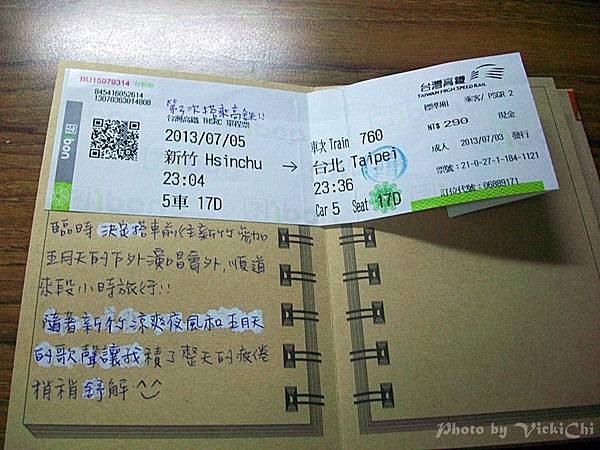 BU15979314
845416052614
13070363014808
第3次搭乘高鐵!!
台灣高鐵 THSRC 單程票
2013/07/05
新竹 Hsinchu
→
23:04
5車 17D
台灣高鐵
TAIWAN HIGH SPEED RAIL
標準廂 乘客/ PSGR 2
車次 Train 760
NT$ 290 現金
台北 Taipei
成人 2013/07/03 發行
23:36
票號:21-0-27-1-184-1121
Car 5 Seat 17D
訂位代號:06889171
bon
臨時決定搭車前往新竹參加
五月天的戶外演唱會外,順道
來段小時旅行!!
隨著新竹涼爽夜風和五月天
的歌聲讓我積了整天的疲倦
稍稍舒解
Photo by VickiChi